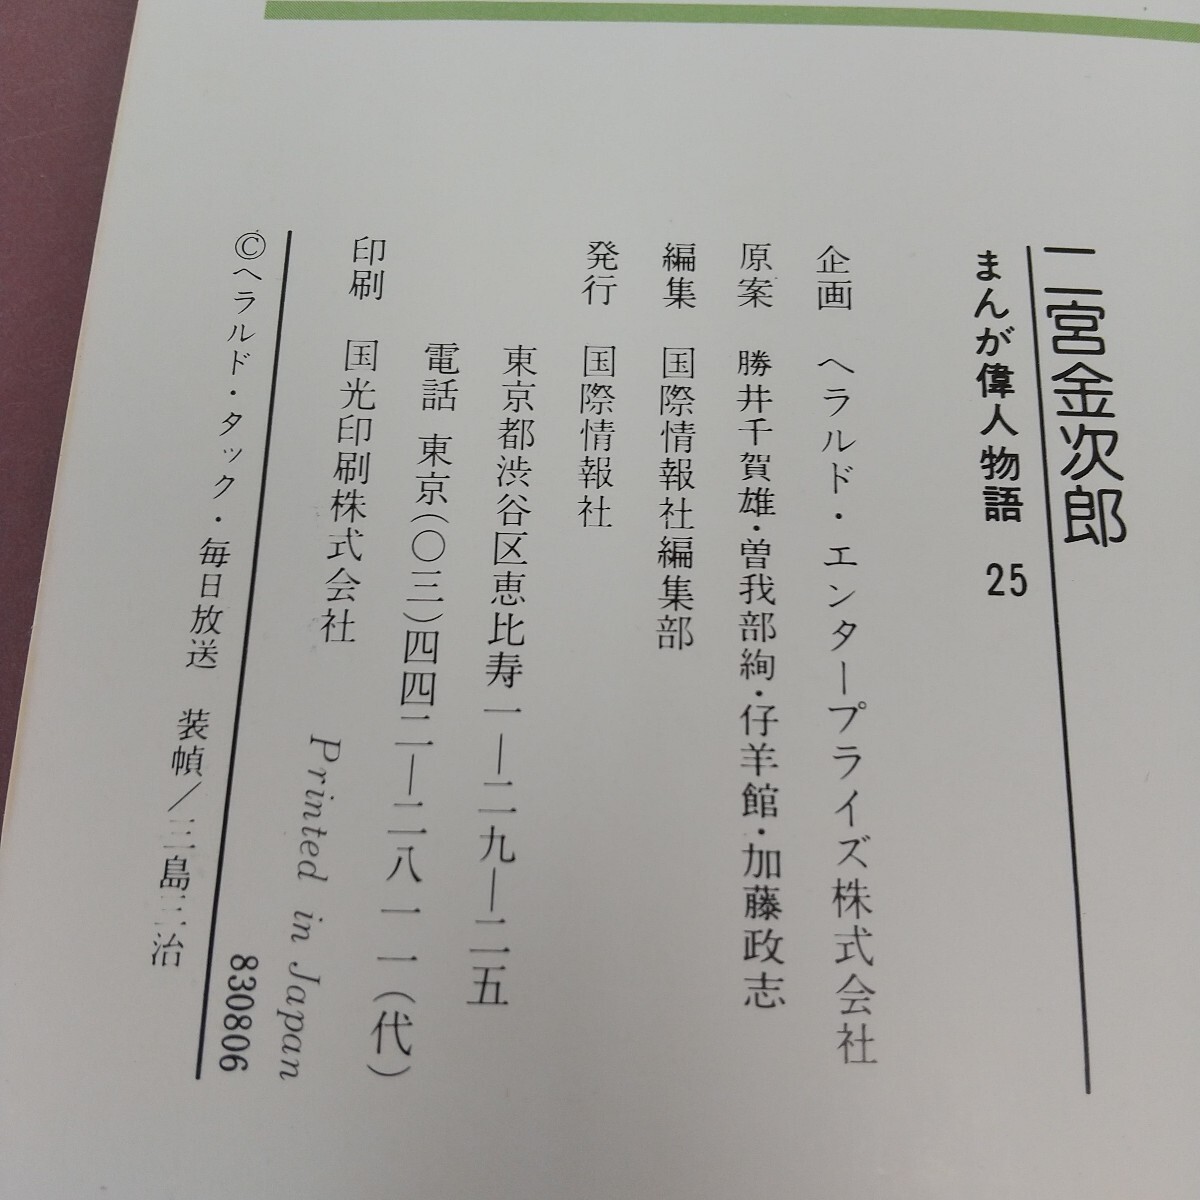 二宮金次郎
まんが偉人物語 25
企画 ヘラルド・エンタープライズ株式会社
原案 勝井千賀雄・曽我部絢・仔羊館・加藤政志
編集 国際情報社編集部
発行 国際情報社
東京都渋谷区恵比寿一―二九―二五
電話 東京(〇三)四四二―二八一一(代)
印刷 国光印刷株式会社
Printed in Japan
830806
©ヘラルド・タック・毎日放送 装幀/三島三治